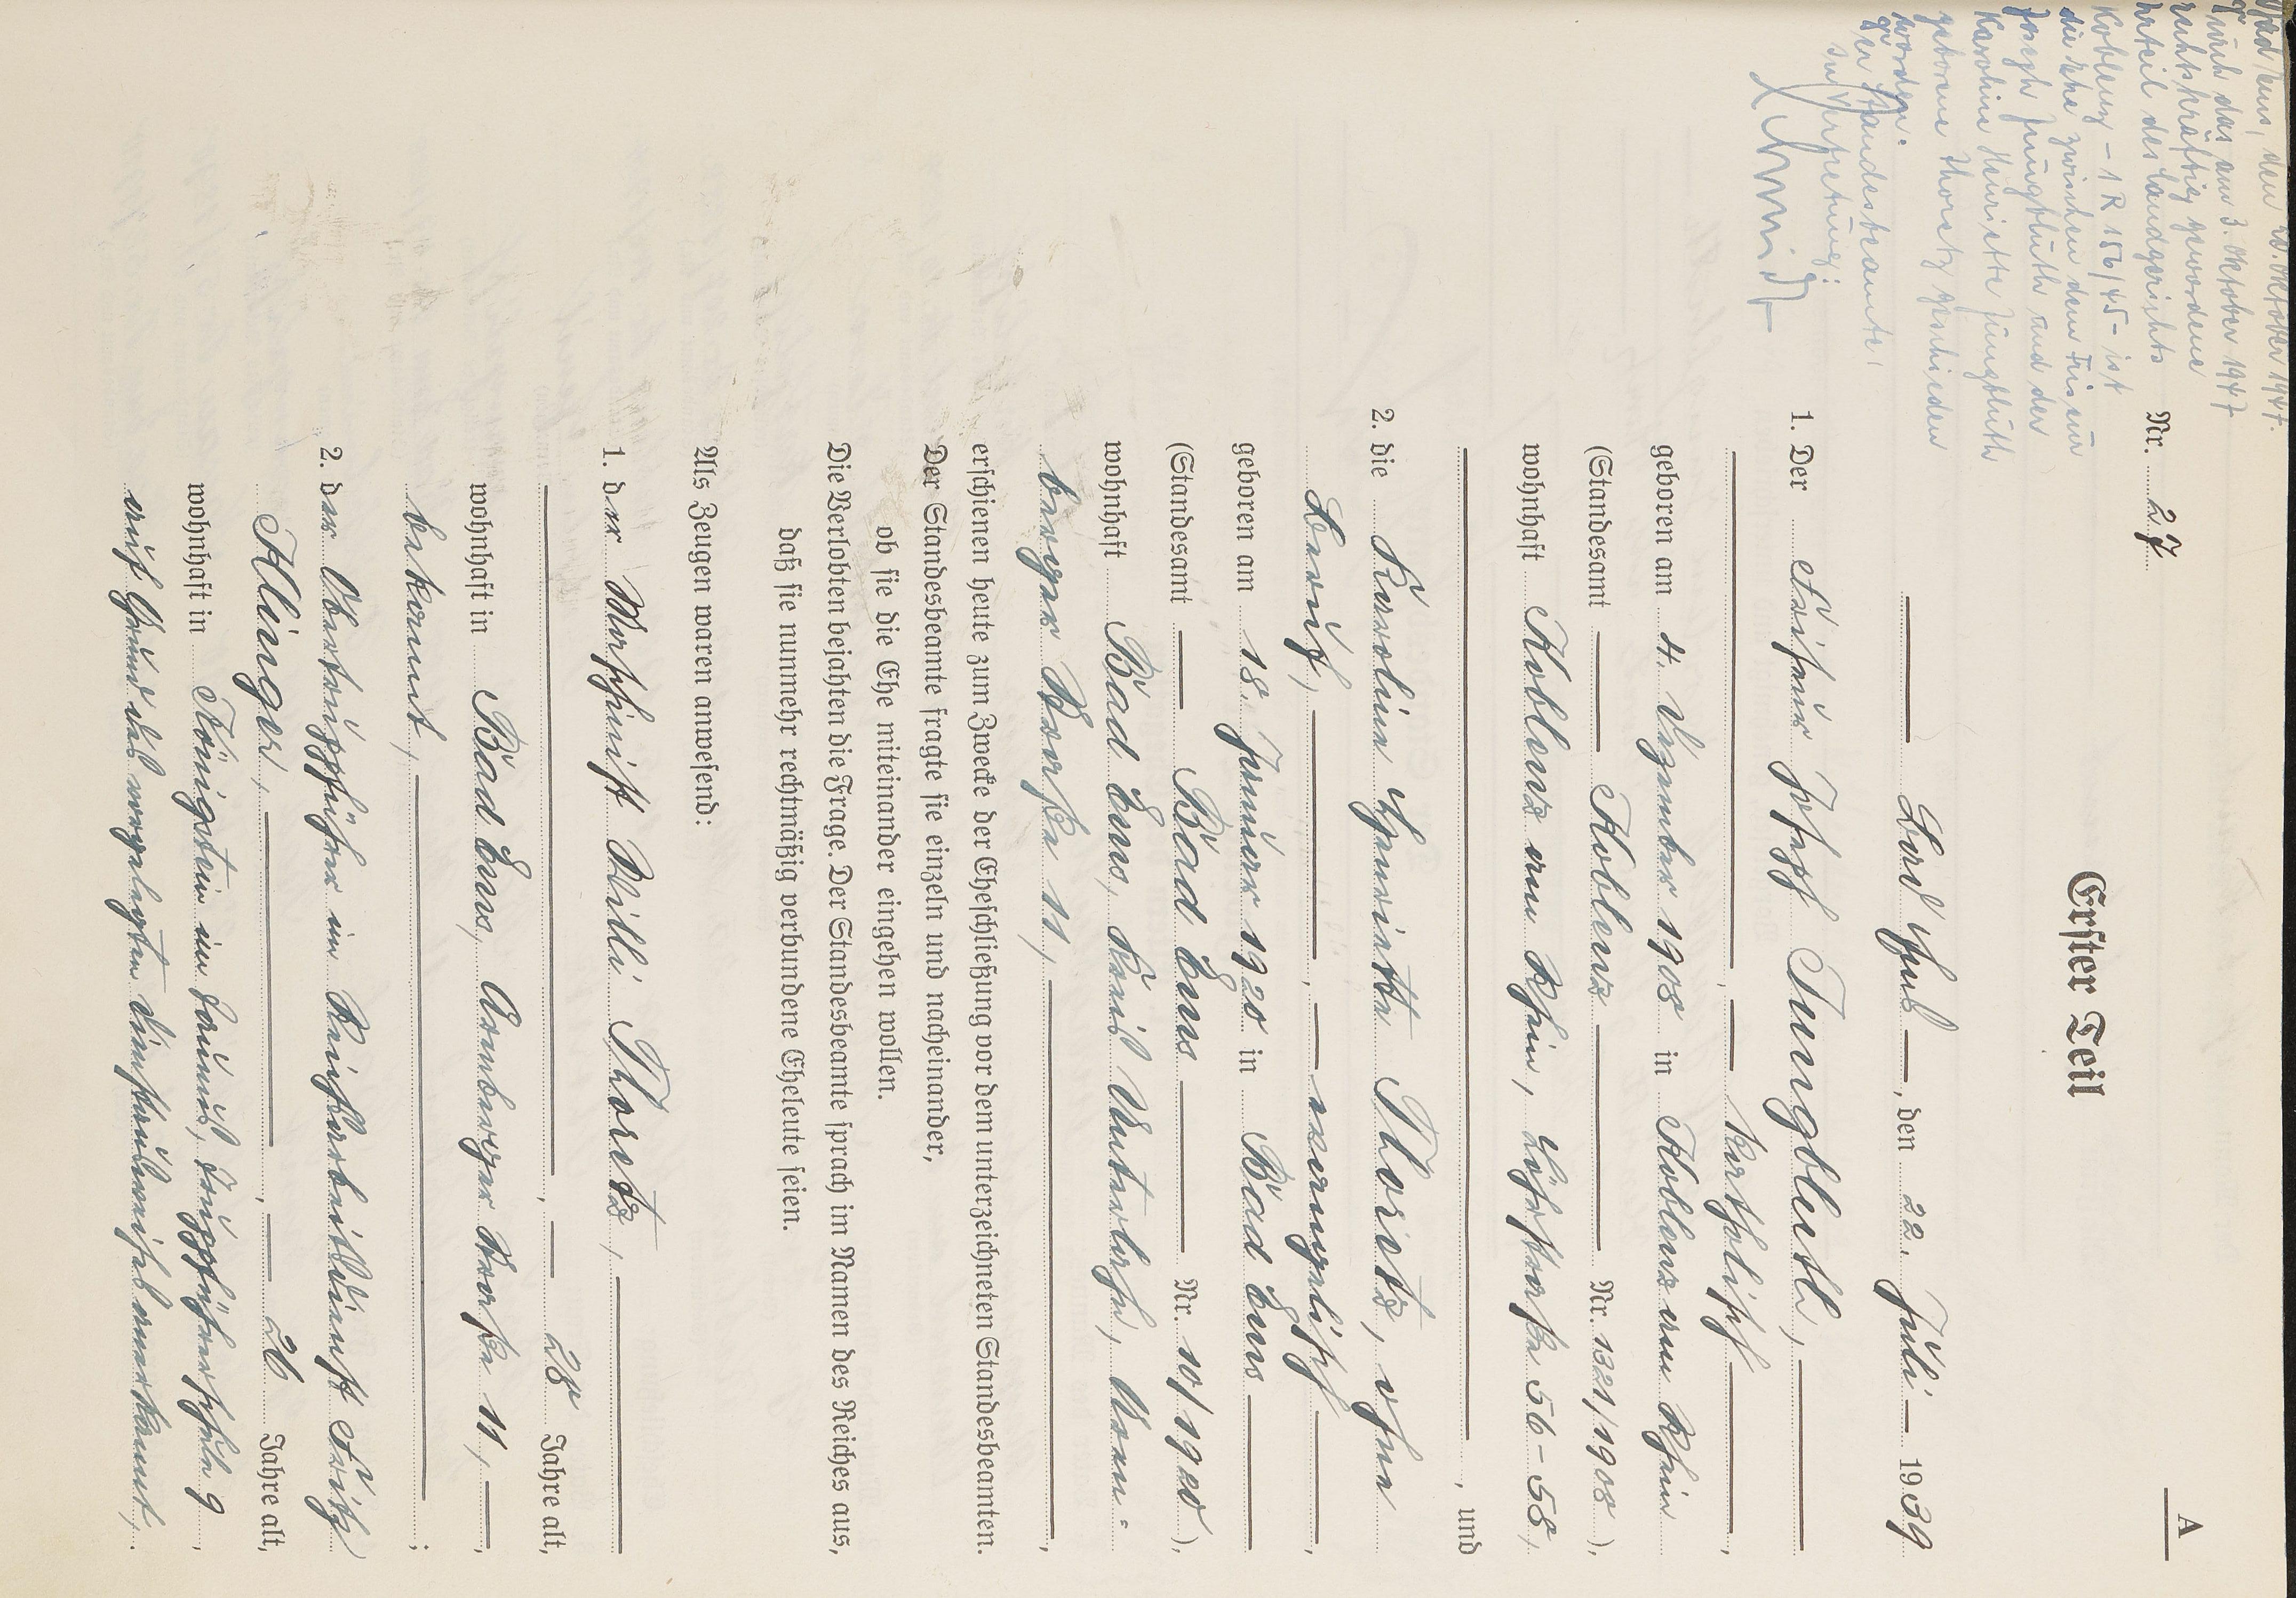 A
Bad Ems, den 20. Oktober 1947.
Durch das am 3. Oktober 1947
rechtskräftig gewordene
Urteil des Landgerichts
Koblenz - 1 R 156/45 - ist
die Ehe zwischen dem Friseur
Joseph Jungbluth und der
Karoline Henriette Jungbluth
geborene Thoretz geschieden
worden.
Der Standesbeamte!
In Vertretung:
Schmidt
Nr. 27
Erster Teil
Bad Ems, den 22. Juli 1939
1. Der Friseur Josef Jungbluth,
, katholisch,
geboren am 4. Dezember 1908 in Koblenz am Rhein
(Standesamt Koblenz Nr. 1321/1908),
wohnhaft Koblenz am Rhein, Löhrstraße 56-58,
, und
2. die Karoline Henriette Thoretz, ohne
Beruf, , evangelisch,
geboren am 18. Januar 1920 in Bad Ems
(Standesamt Bad Ems Nr. 10/1920),
wohnhaft Bad Ems, Kreis Unterlahn, Arn=
berger Straße 11,
erschienen heute zum Zwecke der Eheschließung vor dem unterzeichneten Standesbeamten.
Der Standesbeamte fragte sie einzeln und nacheinander,
ob sie die Ehe miteinander eingehen wollen.
Die Verlobten bejahten die Frage. Der Standesbeamte sprach im Namen des Reiches aus,
daß sie nunmehr rechtmäßig verbundene Eheleute seien.
Als Zeugen waren anwesend:
1. der Maschinist Willi Thoretz,
, 28 Jahre alt,
wohnhaft in Bad Ems, Arnberger Straße 11,
bekannt, ;
2. der Obertruppführer im Reichsarbeitsdienst Fritz
Klinger, , 26 Jahre alt,
wohnhaft in Königstein im Taunus, Truppführerschule 9,
auf Grund des vorgelegten Dienstausweises anerkannt,